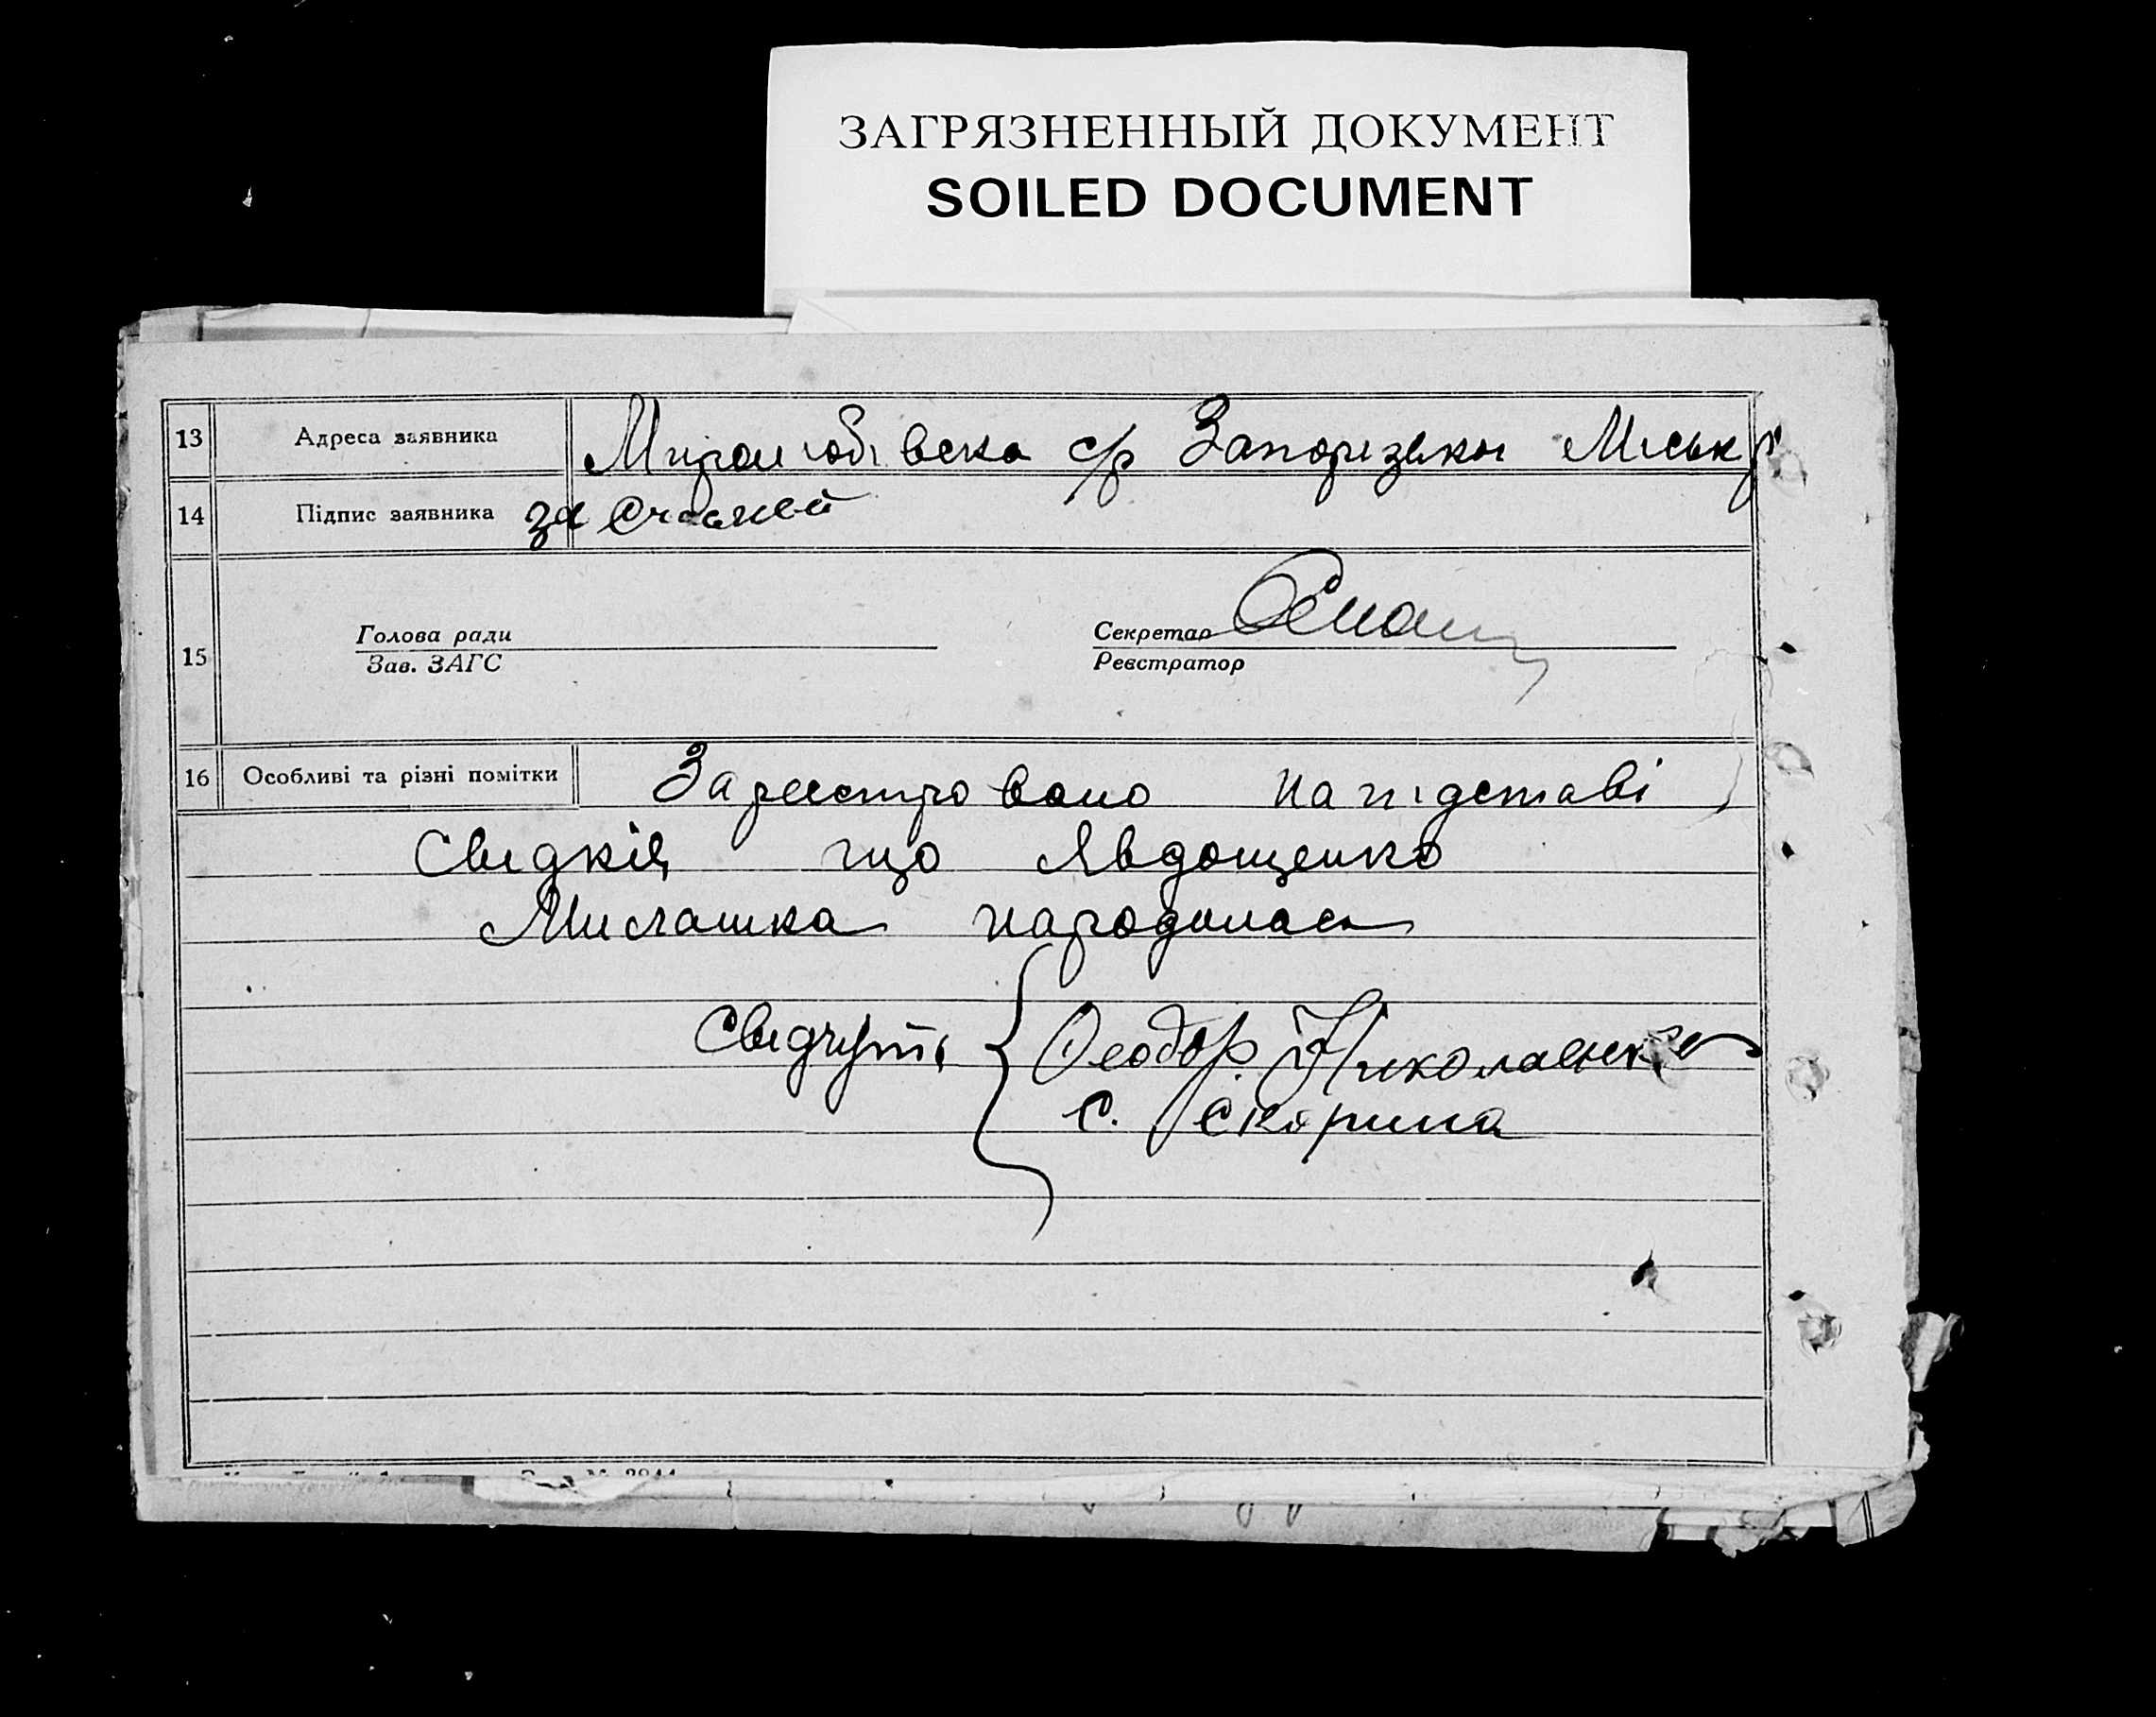 ЗАГРЯЗНЕННЫЙ ДОКУМЕНТ
SOILED DOCUMENT
13 Адреса заявника Миролюбівска с/р Запорізькы Міськ
14 Підпис заявника за
15 Голова ради Секретар
Зав. ЗАГС Реєстратор
16 Особливі та різні помітки Зареєстровано на підставі
Свидків що Явдощенко
Милашка народилась
Свідчуть Феодор. Николаенко
С. Скорина